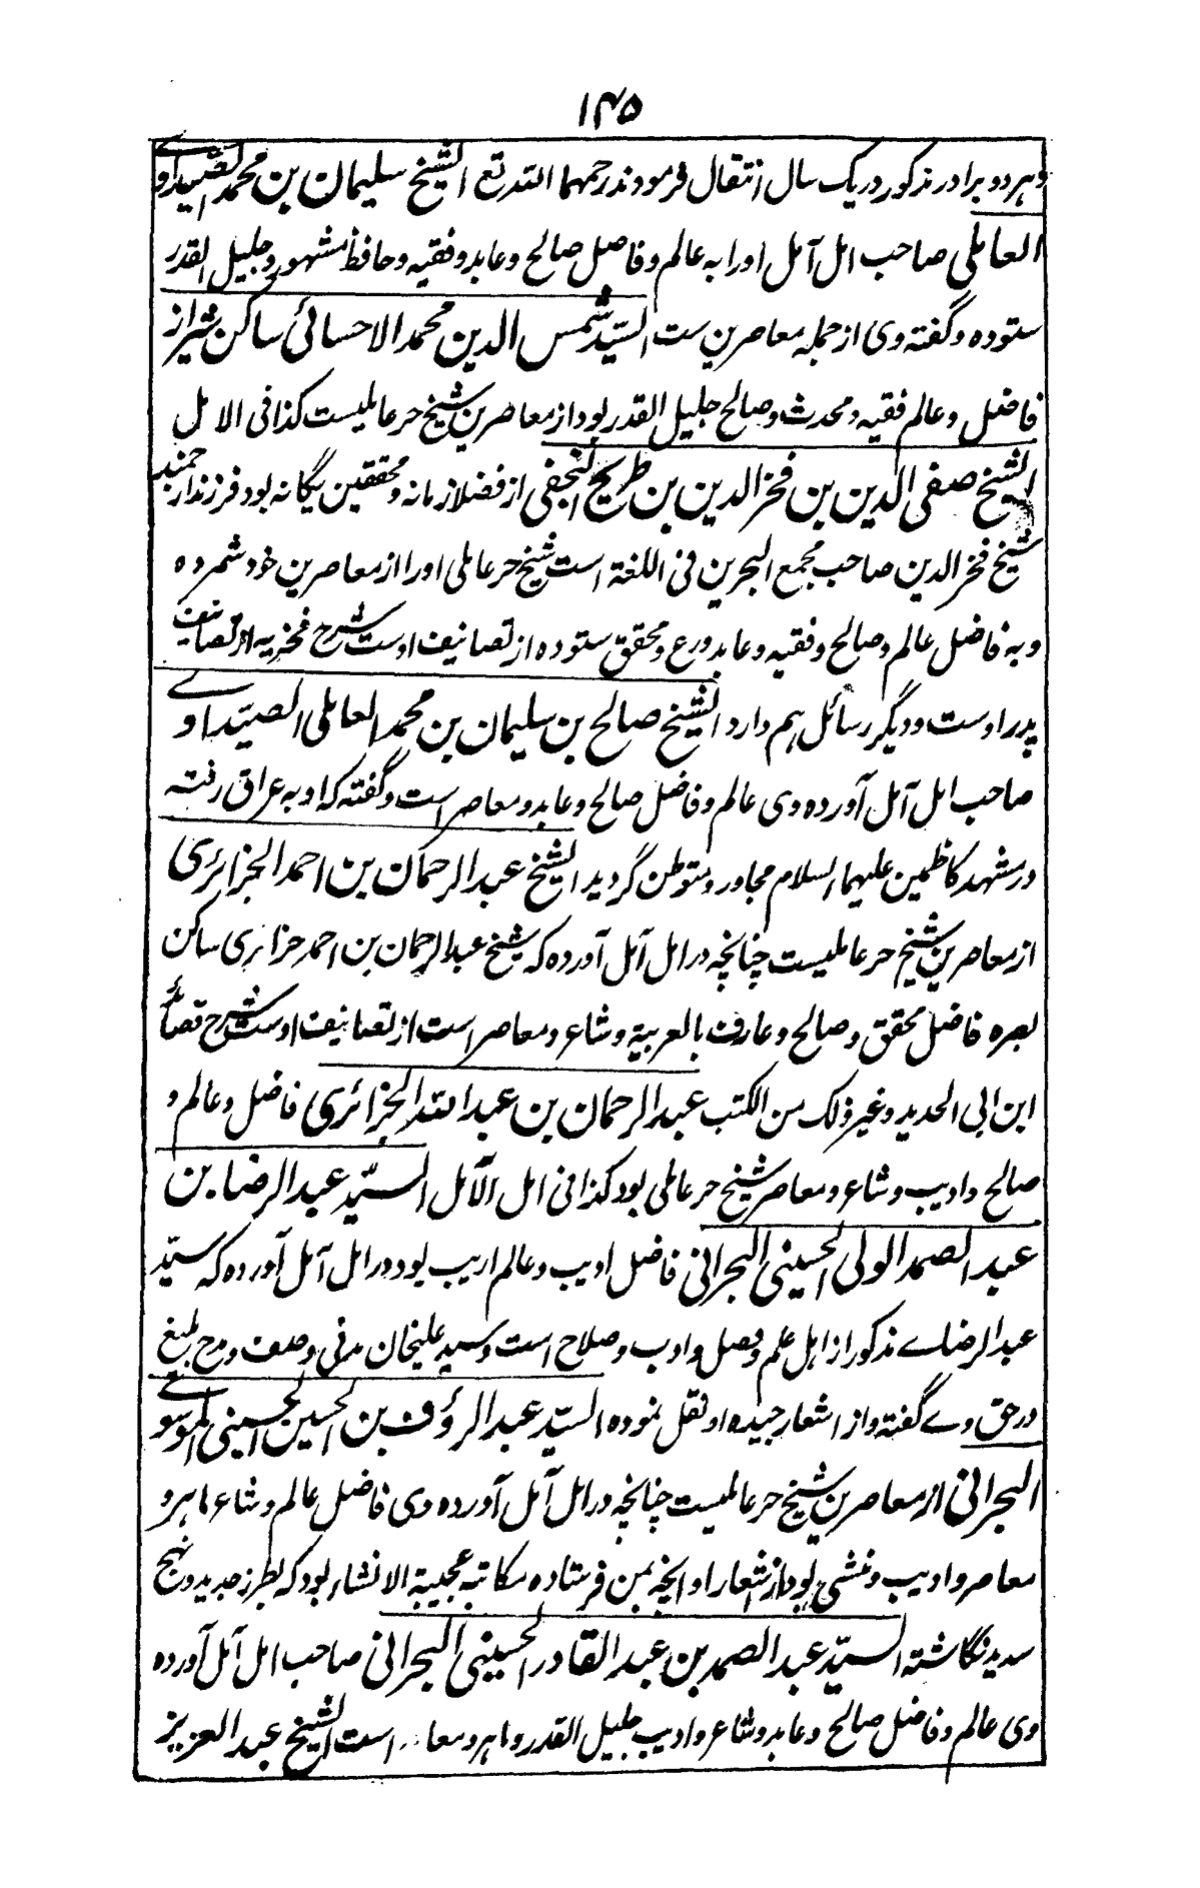 ۱۴۵
وهردو برادر مذکور در یک سال انتقال فرمودند رحمهما الله تع الشیخ سلیمان بن محمد الصیداوے
العاملی صاحب امل آمل اورا به عالم و فاضل صالح و عابد و فقیه و حافظ مشهور و جلیل القدر
ستوده و گفته وی از جمله معاصرین ست السید شمس الدین محمد الاحسائی ساکن شیراز
فاضل و عالم فقیه و محدث و صالح جلیل القدر بود از معاصرین شیخ حر عاملیست کذا فی الامل
الشیخ صفی الدین بن فخر الدین بن طریح النجفی از فضلا زمانه و محققین یگانه بود فرزند ارجمند
شیخ فخر الدین صاحب مجمع البحرین فی اللغة است شیخ حر عاملی اورا از معاصرین خود شمرده
و به فاضل عالم و صالح و فقیه و عابد ورع و محقق ستوده از تصانیف اوست شرح فخریه از تصانیف
پدر اوست و دیگر رسائل هم دارد الشیخ صالح بن سلیمان بن محمد العاملی الصیداوے
صاحب امل آمل آورده وی عالم و فاضل صالح و عابد و معاصر است و گفته که او به عراق رفته
در مشهد کاظمین علیهما السلام مجاور و متوطن گردید الشیخ عبد الرحمان بن احمد الجزائری
از معاصرین شیخ حر عاملیست چنانچه در امل آمل آورده که شیخ عبد الرحمان بن احمد جزائری ساکن
بصره فاضل محقق و صالح و عارف بالعربیة و شاعر و معاصر است از تصانیف اوست شرح قصائد
ابن ابی الحدید و غیر ذلک من الکتب عبد الرحمان بن عبد الله الجزائری فاضل و عالم و
صالح و ادیب و شاعر و معاصر شیخ حر عاملی بود کذا فی امل الآمل السید عبد الرضا بن
عبد الصمد الولی الحسینی البحرانی فاضل ادیب و عالم اریب بود در امل آمل آورده که سید
عبد الرضاے مذکور از اهل علم و فضل و ادب و صلاح است و سید علیخان مدنی وصف و مدح بلیغ
در حق وے گفته و از اشعار جیده او نقل نموده السید عبد الرؤف بن الحسین الحسینی الموسوے
البحرانی از معاصرین شیخ حر عاملیست چنانچه در امل آمل آورده وی فاضل عالم و شاعر ماهر و
معاصر و ادیب و منشی بود از اشعار او انچه بمن فرستاده مکاتبه عجیبة الانشاء بود که بطرز جدید و نهج
سدید نگاشته السید عبد الصمد بن عبد القادر الحسینی البحرانی صاحب امل آمل آورده
وی عالم و فاضل صالح و عابد و شاعر و ادیب جلیل القدر و ماهر و معاصر است الشیخ عبد العزیز